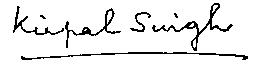 Kirpal Singh